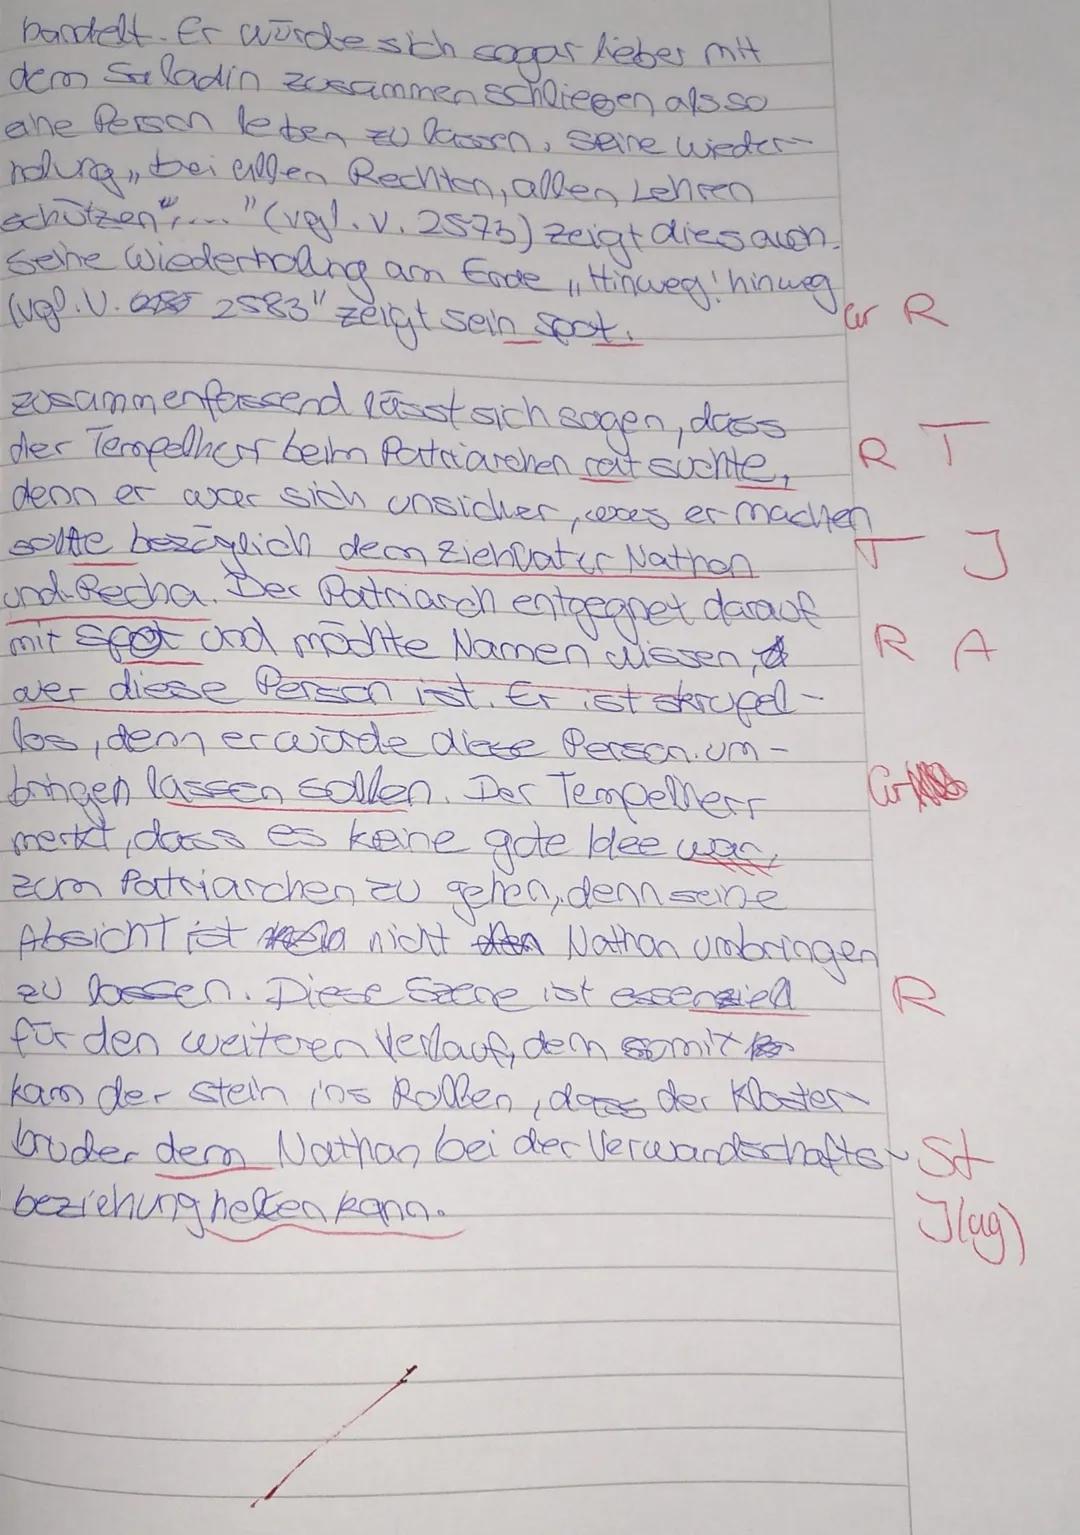 handelt. Er würde sich sogar lieber mit
dem Saladin zusammenschließen, als so
eine Person leben zu lassen. Seine Wieder-
holung „bei allen Rechten, allen Lehren
schützen",..." (vgl. V. 2573) zeigt dies auch.
Seine Wiederholung am Ende „Hinweg! hinweg
(vgl. V. 2583" zeigt sein Spot. Gr R
zusammenfassend lässt sich sagen, dass
der Tempelherr beim Patriarchen rat suchte, R T
denn er war sich unsicher, was er machen
sollte bezüglich dem Ziehvater Nathan T I
und Recha. Der Patriarch entgegnet darauf
mit Spot und möchte Namen wissen, R A
wer diese Person ist. Er ist skrupel-
los, denn er würde diese Person um-
bringen lassen sollen. Der Tempelherr Gr
merkt, dass es keine gute Idee war,
zum Patriarchen zu gehen, denn seine
Absicht ist nicht Nathan umbringen
zu lassen. Diese Szene ist essenziell R
für den weiteren Verlauf, denn somit
kam der stein ins Rollen, dass der Kloster-
bruder dem Nathan bei der Verwandschafts- St
beziehung helfen kann. I(ug)